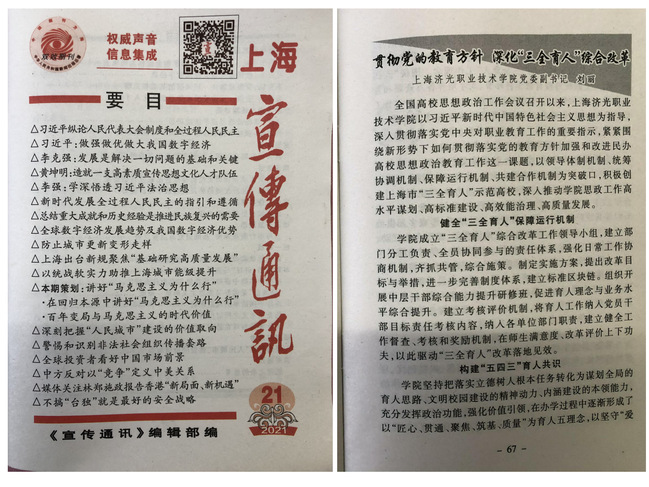 双效期刊
权威声音
信息集成
上海
宣傳通訊
要目
△习近平纵论人民代表大会制度和全过程人民民主
△习近平：做强做优做大我国数字经济
△李克强：发展是解决一切问题的基础和关键
△黄坤明：造就一支高素质宣传思想文化人才队伍
△李强：学深悟透习近平法治思想
△新时代发展全过程人民民主的指引和遵循
△总结重大成就和历史经验是推进民族复兴的需要
△全球数字经济发展趋势及我国数字经济优势
△防止城市更新变形走样
△上海出台新规聚焦“基础研究高质量发展”
△以统战软实力助推上海城市能级提升
△本期策划：讲好“马克思主义为什么行”
·在回归本源中讲好“马克思主义为什么行”
·百年变局与马克思主义的时代价值
△深刻把握“人民城市”建设的价值取向
△警惕和识别非法社会组织传播套路
△全球投资者看好中国市场前景
△中方反对以“竞争”定义中美关系
△媒体关注林郑施政报告香港“新局面、新机遇”
△不搞“台独”就是最好的安全战略
21
2021
《宣传通讯》编辑部编
贯彻党的教育方针 深化“三全育人”综合改革
上海济光职业技术学院党委副书记 刘丽
全国高校思想政治工作会议召开以来，上海济光职业
技术学院以习近平新时代中国特色社会主义思想为指导，
深入贯彻落实党中央对职业教育工作的重要指示，紧紧围
绕新形势下如何贯彻落实党的教育方针加强和改进民办
高校思想政治教育工作这一课题，以领导体制机制、统筹
协调机制、保障运行机制、共建合作机制为突破口，积极创
建上海市“三全育人”示范高校，深入推动学院思政工作高
水平谋划、高标准建设、高效能治理、高质量发展。
健全“三全育人”保障运行机制
学院成立“三全育人”综合改革工作领导小组，建立部
门分工负责、全员协同参与的责任体系，强化日常工作协
商机制，齐抓共管，综合施策。制定实施方案，提出改革目
标与举措，进一步完善制度体系，建立标准区块链。组织开
展中层干部综合能力提升研修班，促进育人理念与业务水
平综合提升。建立考核评价机制，将育人工作纳入党员干
部目标责任考核内容，纳入各单位部门职责，建立健全工
作督查、考核和奖励机制，在师生满意度、改革评价上下功
夫，以此驱动“三全育人”改革落地见效。
构建“五四三”育人共识
学院坚持把落实立德树人根本任务转化为谋划全局的
育人思路、文明校园建设的精神动力、内涵建设的本领能力，
充分发挥政治功能，强化价值引领，在办学过程中逐渐形成了
以“匠心、贯通、聚焦、筑基、质量”为育人五理念，以坚守“爱
- 67 -